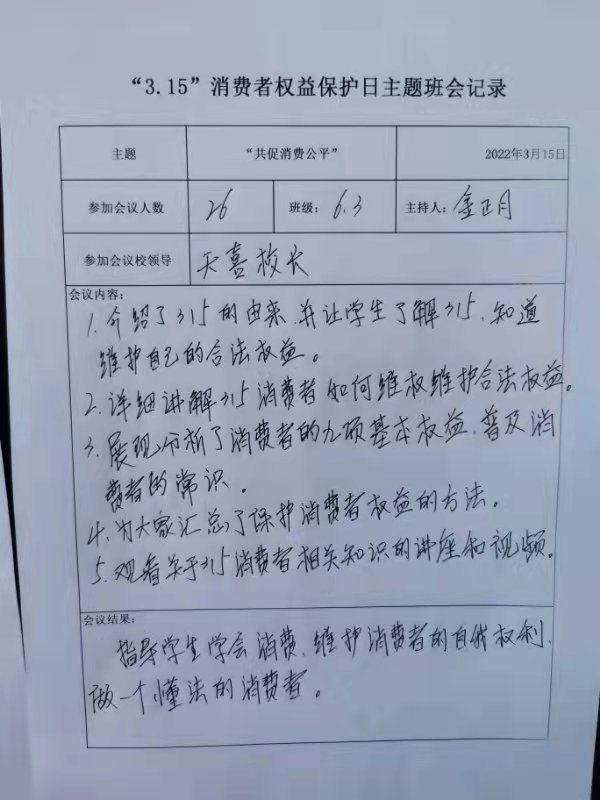 “3.15”消费者权益保护日主题班会记录
主题 “共促消费公平” 2022年3月15日
参加会议人数 26 班级： 6.3 主持人： 金正月
参加会议校领导 天喜校长
会议内容：
1. 介绍了315的由来、并让学生了解315、知道
维护自己的合法权益。
2. 详细讲解315消费者如何维权维护合法权益。
3. 展现分析了消费者的九项基本权益、普及消
费者的常识。
4. 为大家汇总了保护消费者权益的方法。
5. 观看关于315消费者相关知识的讲座和视频。
会议结果：
指导学生学会消费、维护消费者的自我权利、
做一个懂法的消费者。